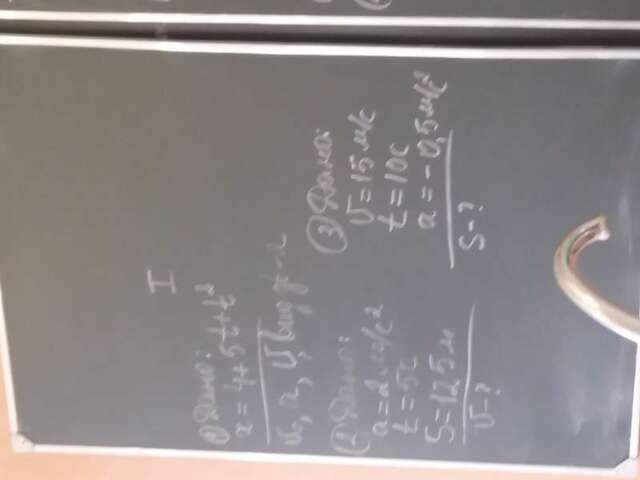 I
① Дано:
x = 4 + 5t + t²
v₀, a, v, вид дв-я
② Дано:
a = 2 м/с²
t = 5с
S = 125 м
v - ?
③ Дано:
v = 15 м/с
t = 10с
a = -0,5 м/с²
S - ?